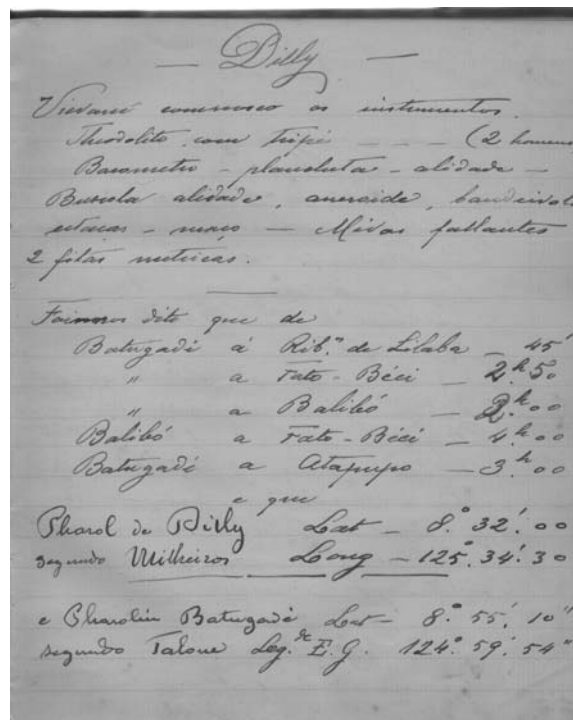 — Dilly —
Vieram comnosco os instrumentos.
Theodolito com tripé — — — (2 homens
Barometro - plancheta - alidade -
Bussola alidade, aneroide, bandeirol
estacas - maço — Miras fallantes
2 fitas metricas.
Foi-nos dito que de
Batugadé á Rib.ª de Lilaba — 45'
" a Fato-Béci — 2h.50
" a Balibó — 2h.00
Balibó a Fato-Béci — 4h.00
Batugadé a Atapupo — 3h.00
e que
Pharol de Dilly Lat — 8.° 32.' 00
segundo Milheiros Long — 125.° 34.' 30
e Pharolim Batugadé Lat — 8.° 55.' 10"
segundo Talone Lég. de E.G. 124.° 59.' 54"